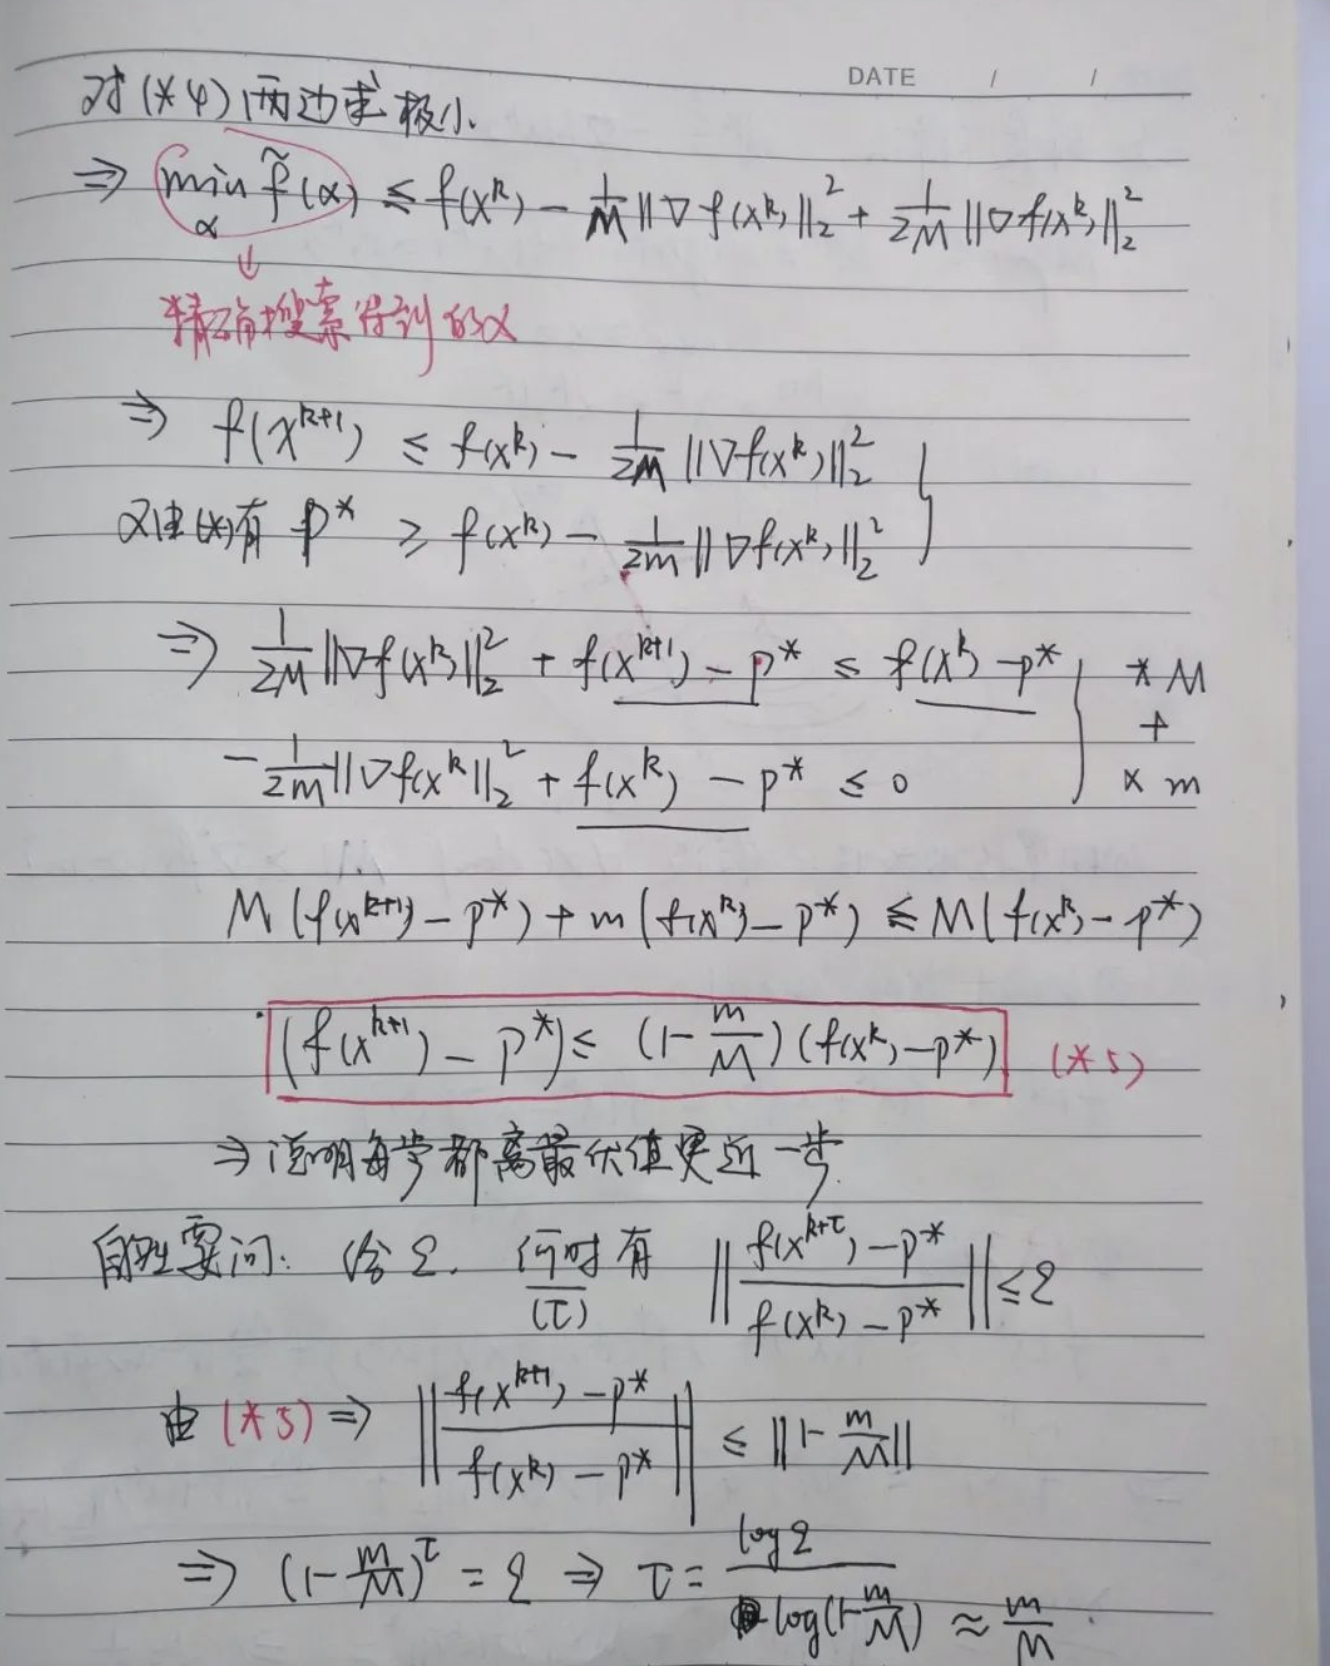 DATE / /
对(*4)两边求极小.
⇒ min_α f̃(α) ≤ f(x^k) - 1/M ‖∇f(x^k)‖₂² + 1/2M ‖∇f(x^k)‖₂²
↓
精确搜索得到的α
⇒ f(x^{k+1}) ≤ f(x^k) - 1/2M ‖∇f(x^k)‖₂²
又由(*)有 p* ≥ f(x^k) - 1/2m ‖∇f(x^k)‖₂²
⇒ 1/2M ‖∇f(x^k)‖₂² + f(x^{k+1}) - p* ≤ f(x^k) - p* * M
+
- 1/2m ‖∇f(x^k)‖₂² + f(x^k) - p* ≤ 0 × m
M(f(x^{k+1}) - p*) + m(f(x^k) - p*) ≤ M(f(x^k) - p*)
(f(x^{k+1}) - p*) ≤ (1 - m/M)(f(x^k) - p*) (*5)
⇒ 说明每步都离最优值更近一步.
自然要问: 给ε. 何时有 (τ) ‖(f(x^{k+τ}) - p*)/(f(x^k) - p*)‖ ≤ ε
由(*5) ⇒ ‖(f(x^{k+1}) - p*)/(f(x^k) - p*)‖ ≤ ‖1 - m/M‖
⇒ (1 - m/M)^τ = ε ⇒ τ = log ε / log(1 - m/M) ≈ m/M